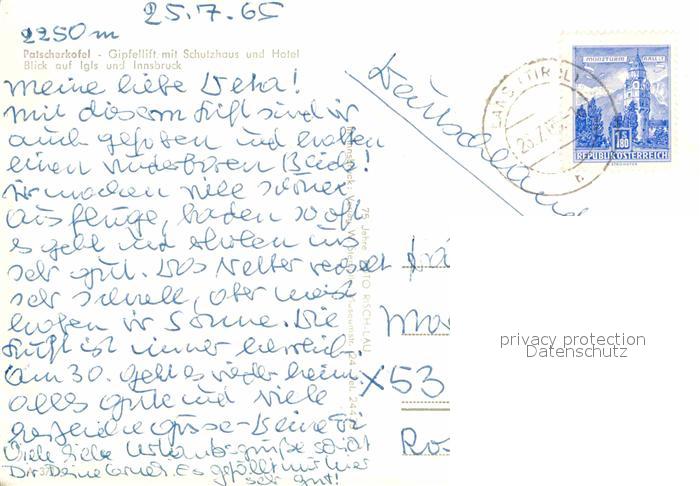 25.7.65
2250m
Patscherkofel - Gipfellift mit Schutzhaus und Hotel
Blick auf Igls und Innsbruck
Meine liebe Vera!
Mit diesem Lift sind wir
auch gefahren und hatten
einen wunderbaren Blick!
Wir machen viele schöne
Ausflüge, baden so oft
es geht und erholen uns
sehr gut. Das Wetter wechselt
sehr schnell, aber meist
haben wir Sonne. Die
Luft ist immer herrlich.
Am 30. geht es wieder heim
alles gute und viele
Grüsse - Deine
Viele liebe Urlaubsgrüße schickt
Dir Deine Es gefällt mir hier
sehr gut!
75 Jahre RISCH-LAU
Deutschland
MÜNZTURM HALL I. T.
S 1.80
REPUBLIK ÖSTERREICH
26.7.65
Ma
X 53
Ro
privacy protection
Datenschutz